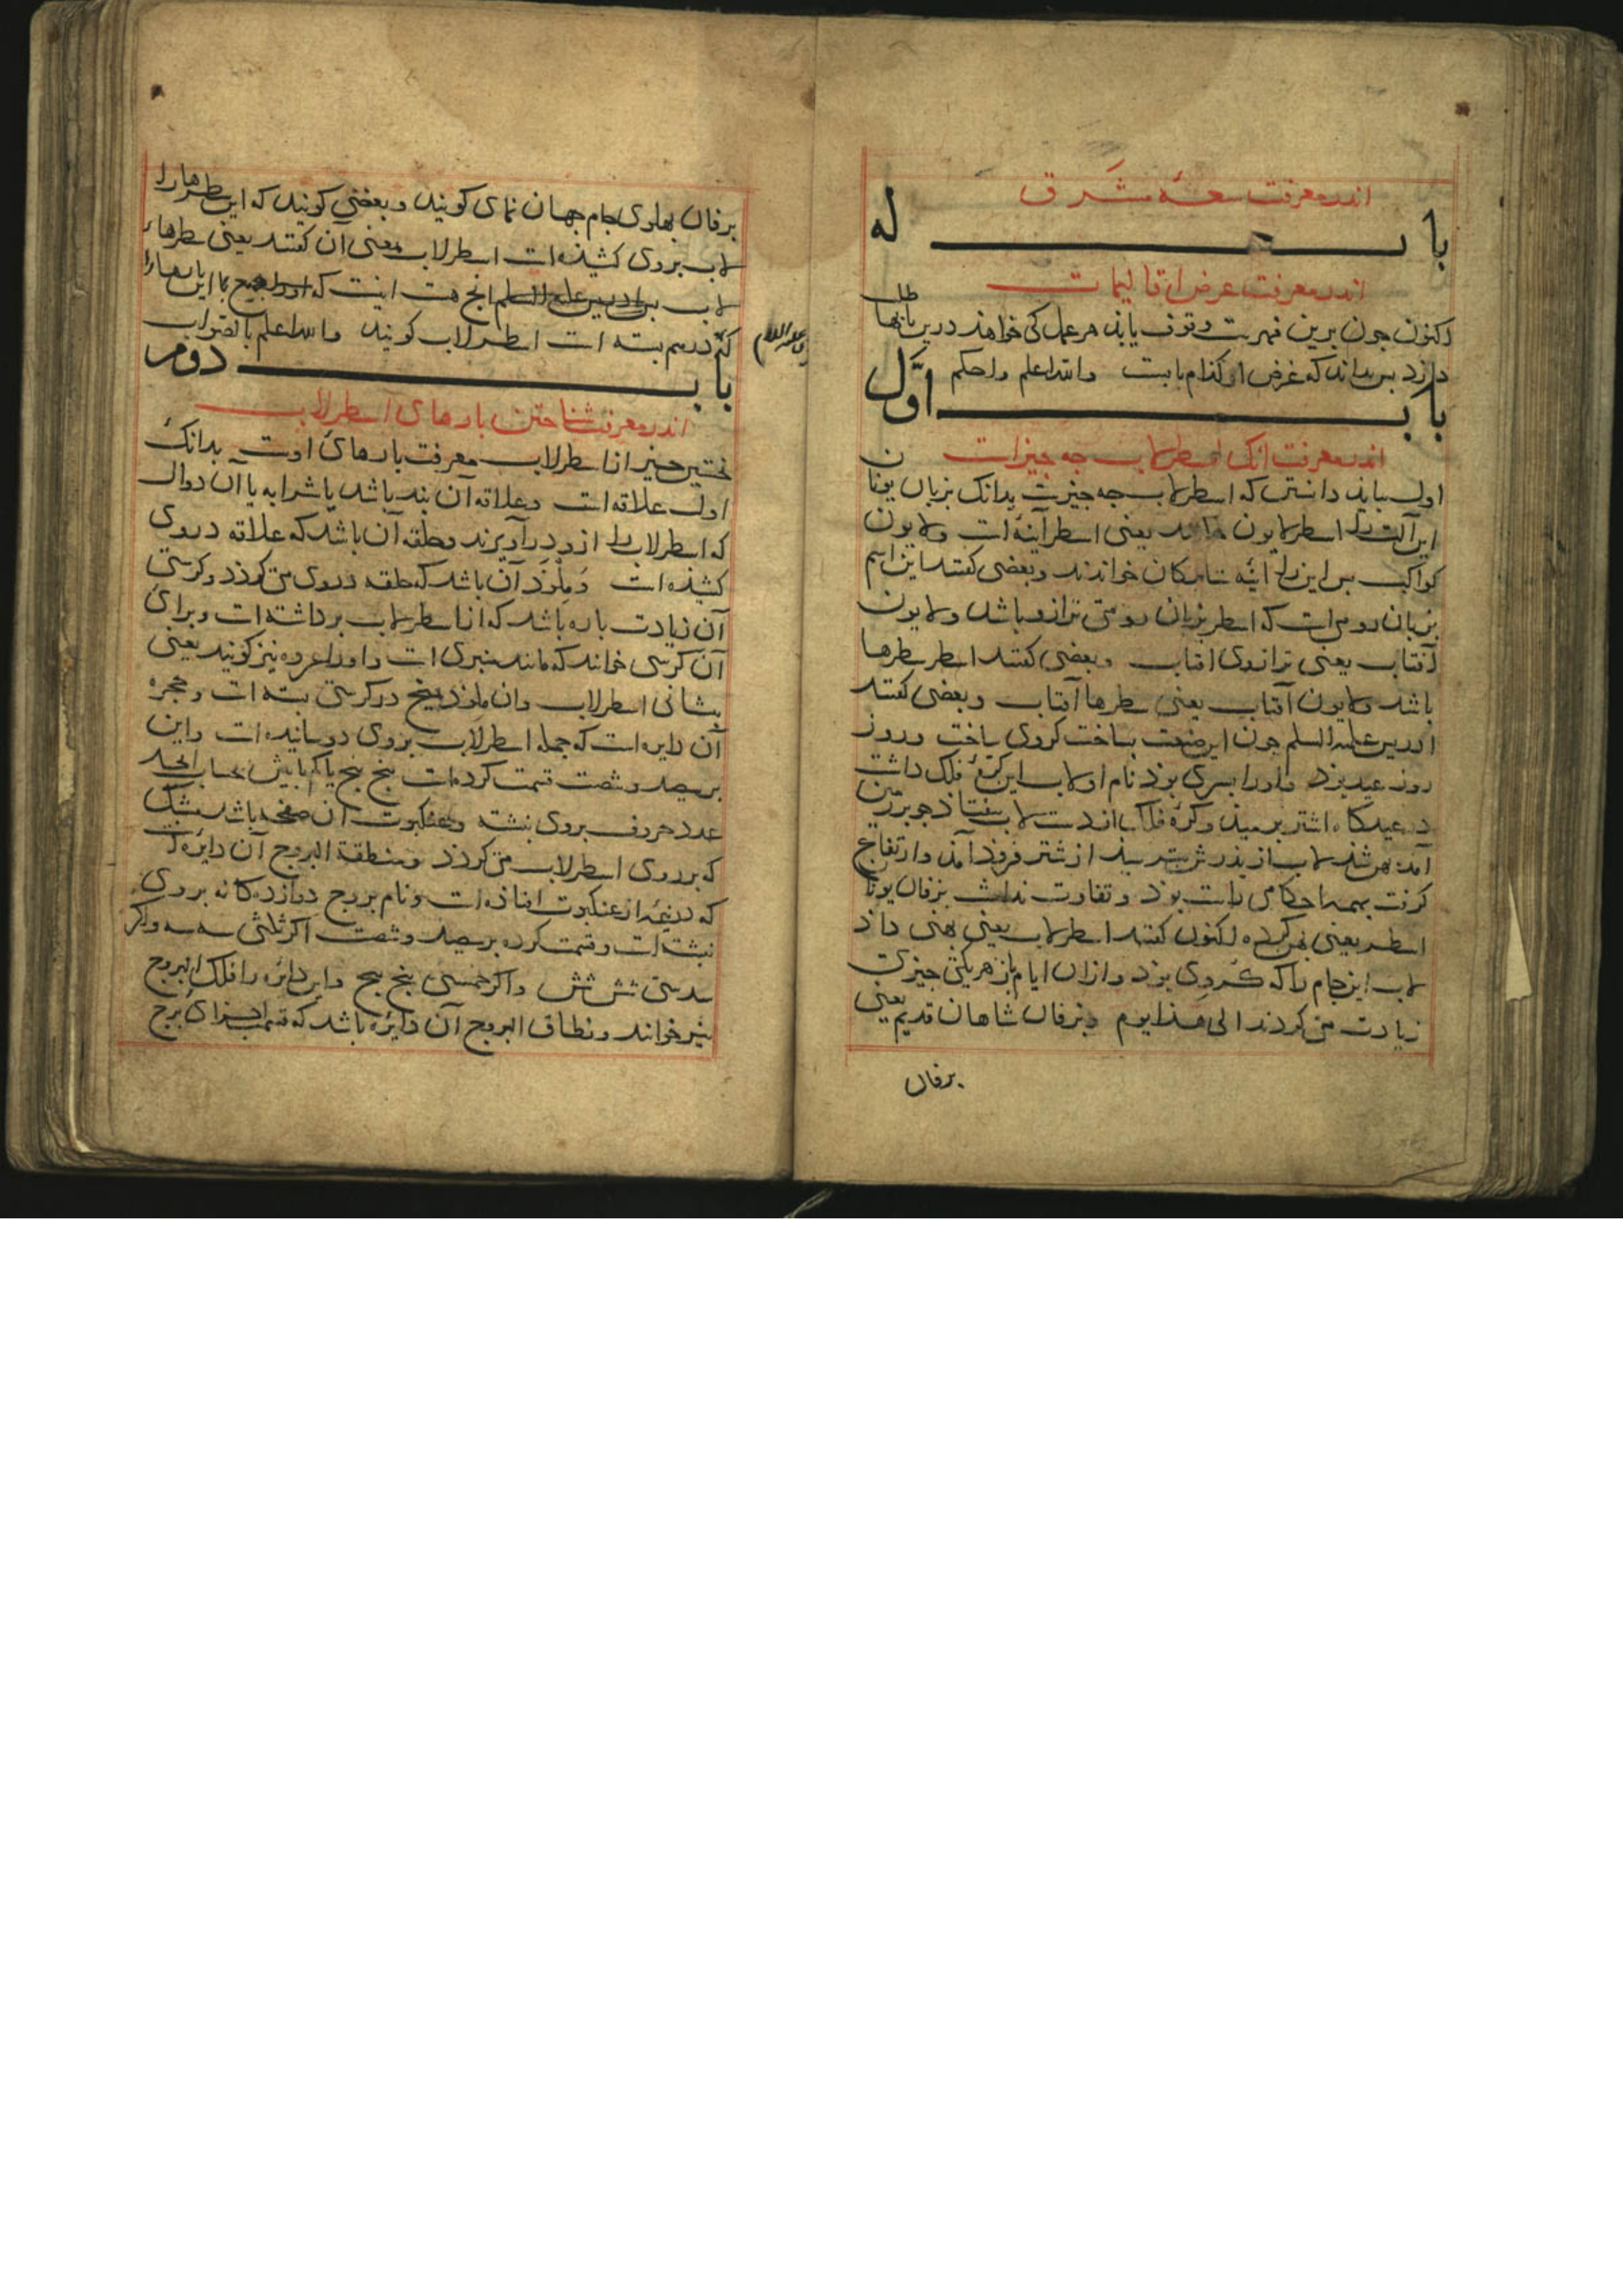 اندر معرفت سعهٔ مشرق
باب له
اندر معرفت عرض اقالیمات
اکنون جون برین فهرست وقوف یابذ هر عمل کی خواهذ درین بابها طلب
دارذ بس بداند که غرض او کذام بابست والله اعلم واحکم
باب اوّل
اندر معرفت آنک اسطرلاب جه جیزاست
اول بباید دانستن که اسطرلاب جه جیزست بدانک بزبان یونان
این آلت را اسطرلابون خوانند یعنی اسطر آینه است ولابون
کواکب بس این را آینه ستارکان خواندند وبعضی کفتند این اسم
بزبان رومی است که اسطر بزبان رومی ترازو باشد ولابون
آفتاب یعنی ترازوی افتاب وبعضی کفتند اسطر سطرها
باشد ولابون آفتاب یعنی سطرها آفتاب وبعضی کفتند
ادریس علیه السلم جون این صنعت بساخت کروی ساخت وروز
روز عید بوذ واورا بسری بوذ نام او لاب این کرهٔ فلک داشت
در عیدکاه اشتر برمیذ وکرهٔ فلک از دست لاب بیفتاذ جو بر زمین
آمذ بهن شذ لاب از بذر بترسید از شتر فروذ آمذ وارتفاع
کرفت بهمه احکامی راست بوذ وتفاوت نداشت بزفان یونان
اسطر یعنی بهن کرده اکنون کفتند اسطرلاب یعنی بهنی داذ
لاب این جام را که کروی بوذ وازان ایام باز هریکی جیزی
زیادت می کردند الی هذا یوم وبزفان شاهان قدیم یعنی
برفان
بزفان بهلوی جام جهان نمای کویند وبعضی کویند که این سطرها را
لاب بروی کشیذه است اسطرلاب معنی آن کفتند یعنی سطرهاء
لاب بن ادریس علیه السلم آنج هست اینست که
که درهم بسته است اسطرلاب کویند والله اعلم بالصواب
باب دوم
اندر معرفت شناختن بارهای اسطرلاب
نخستین جیز از اسطرلاب معرفت بارهای اوست بدانک
اول علاقه است وعلاقه آن بند باشد یا شرابه یا آن دوال
که اسطرلاب را ازو درآویزند وحلقه آن باشد که علاقه دروی
کشیذه است ومِلْوَذ آن باشد که حلقه دروی می کردذ وکرسی
آن زیادت باره باشد که از اسطرلاب برداشته است وبرای
آن کرسی خوانند که مانند منبری است واورا عروه نیز کویند یعنی
بیشانی اسطرلاب وان ملوذ بمیخ در کرسی بسته است وحجره
آن دایره است که جمله اسطرلاب بروی دوسانیده است واین
برسیصد وشصت قسمت کرده است بنج بنج یا کمابیش بحساب ابجد
عدد حروف بروی نبشته وعنکبوت آن صفحه باشد مشبک
که برروی اسطرلاب می کردذ ومنطقة البروج آن دایره است
که نیمه از عنکبوت افتاذه است ونام بروج دوازده کانه بروی
نبشته است وقسمت کرده برسیصد وشصت اکر ثلثی سه سه واکر
سدسی شش شش واکر خمسی بنج بنج واین دایره را فلک البروج
نیز خوانند ونطاق البروج آن دایره باشد که قسمت اجزای برج